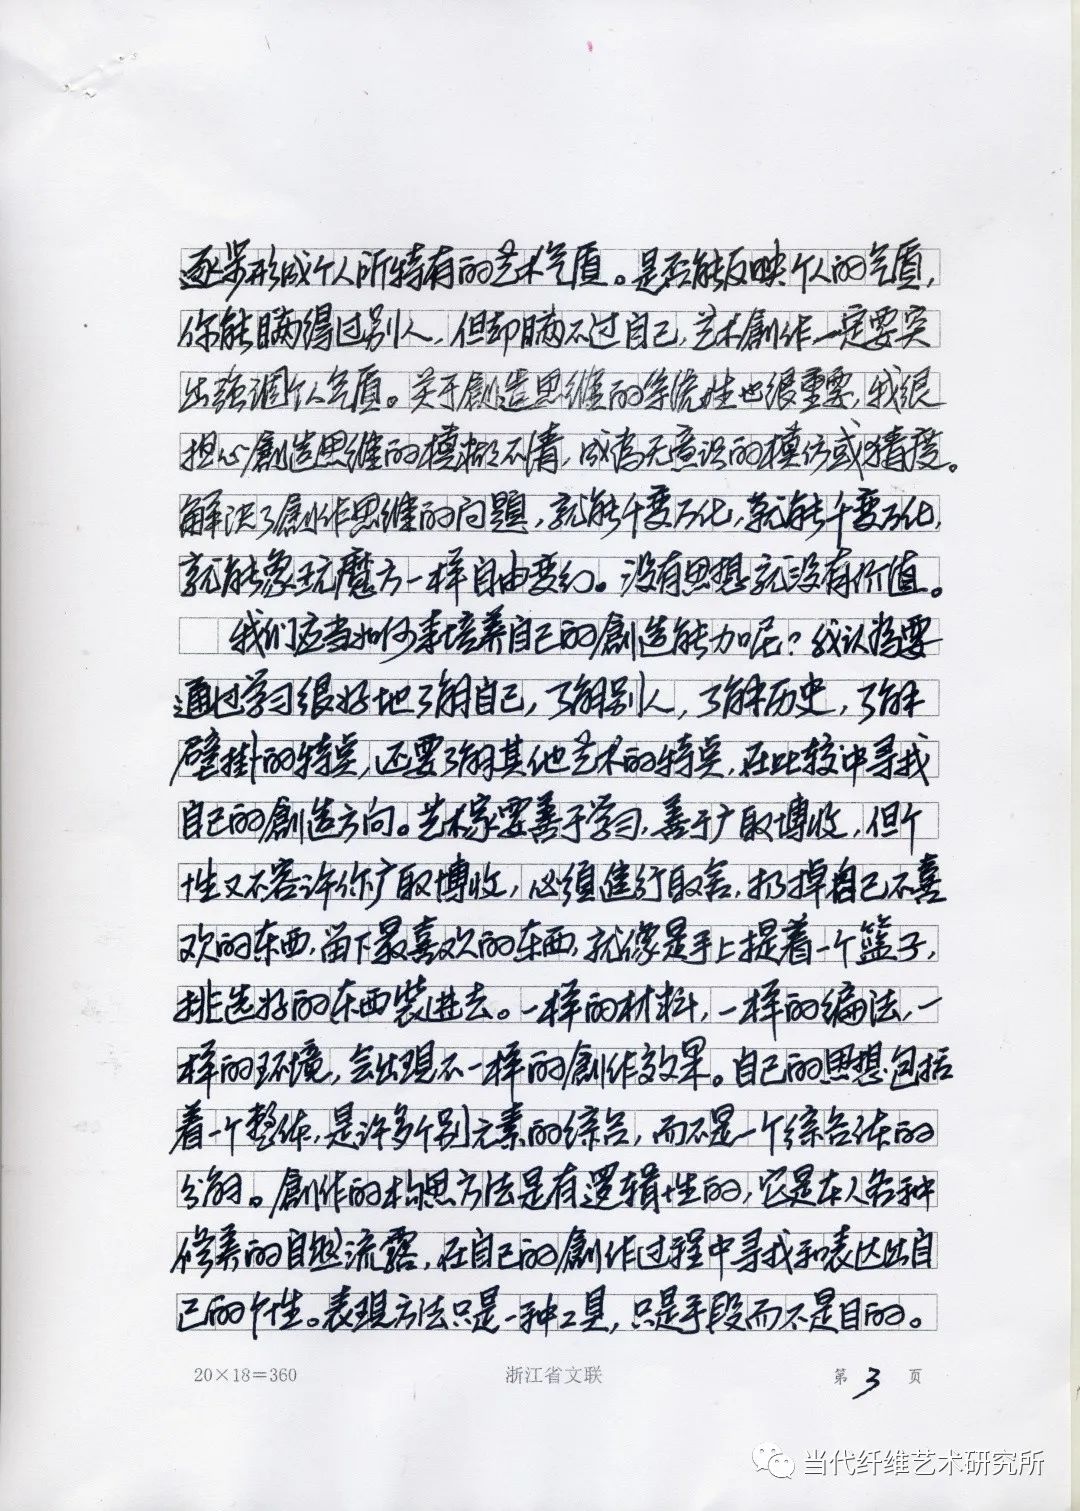 逐步形成个人所特有的艺术气质。是否能反映个人的气质，
你能瞒得过别人，但却瞒不过自己，艺术創作，一定要突
出强调个人气质。关于創造思维的条流性也很重要，我很
担心創造思维的模糊不清，成為无意识的模仿或猜度。
解决了創作思维的问题，就能千变万化，就能千变万化，
就能象玩魔方一样自由变幻。没有思想就没有价值。
我们应当如何来培养自己的創造能力呢？我认為要
通过学习很好地了解自己，了解别人，了解历史，了解
壁掛的特点，还要了解其他艺术的特点，在比较中寻找
自己的創造方向。艺术家要善于学习，善于广取博收，但个
性又不容许你广取博收，必须進行取舍，扔掉自己不喜
欢的东西，留下最喜欢的东西，就像是手上提着一个篮子，
挑选好的东西装進去。一样的材料，一样的编法，一
样的环境，会出現不一样的創作效果。自己的思想包括
着一个整体，是许多个别元素的综合，而不是一个综合体的
分解。創作的构思方法是有逻辑性的，它是本人各种
修养的自然流露，在自己的創作过程中寻找和表达出自
己的个性。表現方法只是一种工具，只是手段而不是目的。
20×18=360 浙江省文联 第 3 页
当代纤维艺术研究所